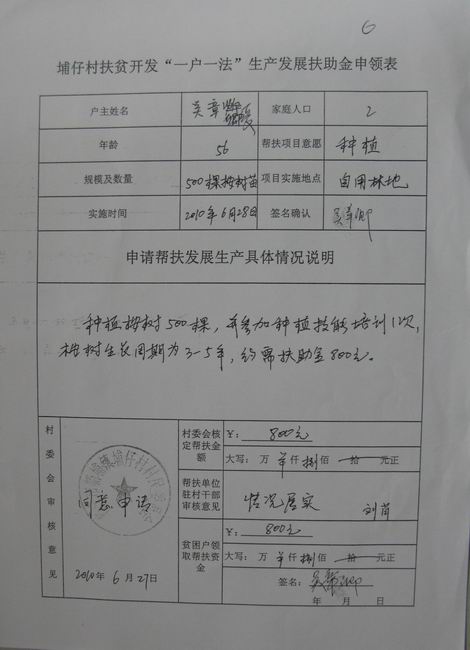 6
埔仔村扶贫开发“一户一法”生产发展扶助金申领表
户主姓名 吴章 家庭人口 2
年龄 56 帮扶项目意愿 种植
规模及数量 500棵桉树苗 项目实施地点 自用林地
实施时间 2010年6月28日 签名确认
申请帮扶发展生产具体情况说明
种植桉树500棵，并参加种植技能培训1次，
桉树生长周期为3-5年，约需扶助金800元。
村委会审核意见
同意申请
2010年6月27日
村委会核定帮扶金额
￥：800元
大写： 万 仟 捌佰 拾 元正
帮扶单位驻村干部审核意见
情况属实
贫困户领取帮扶资金
￥：800元
大写： 万 仟 捌佰 拾 元正
签名：
年 月 日